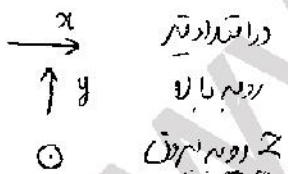 x در امتداد تیر
y رو به بالا
Z رو به بیرون